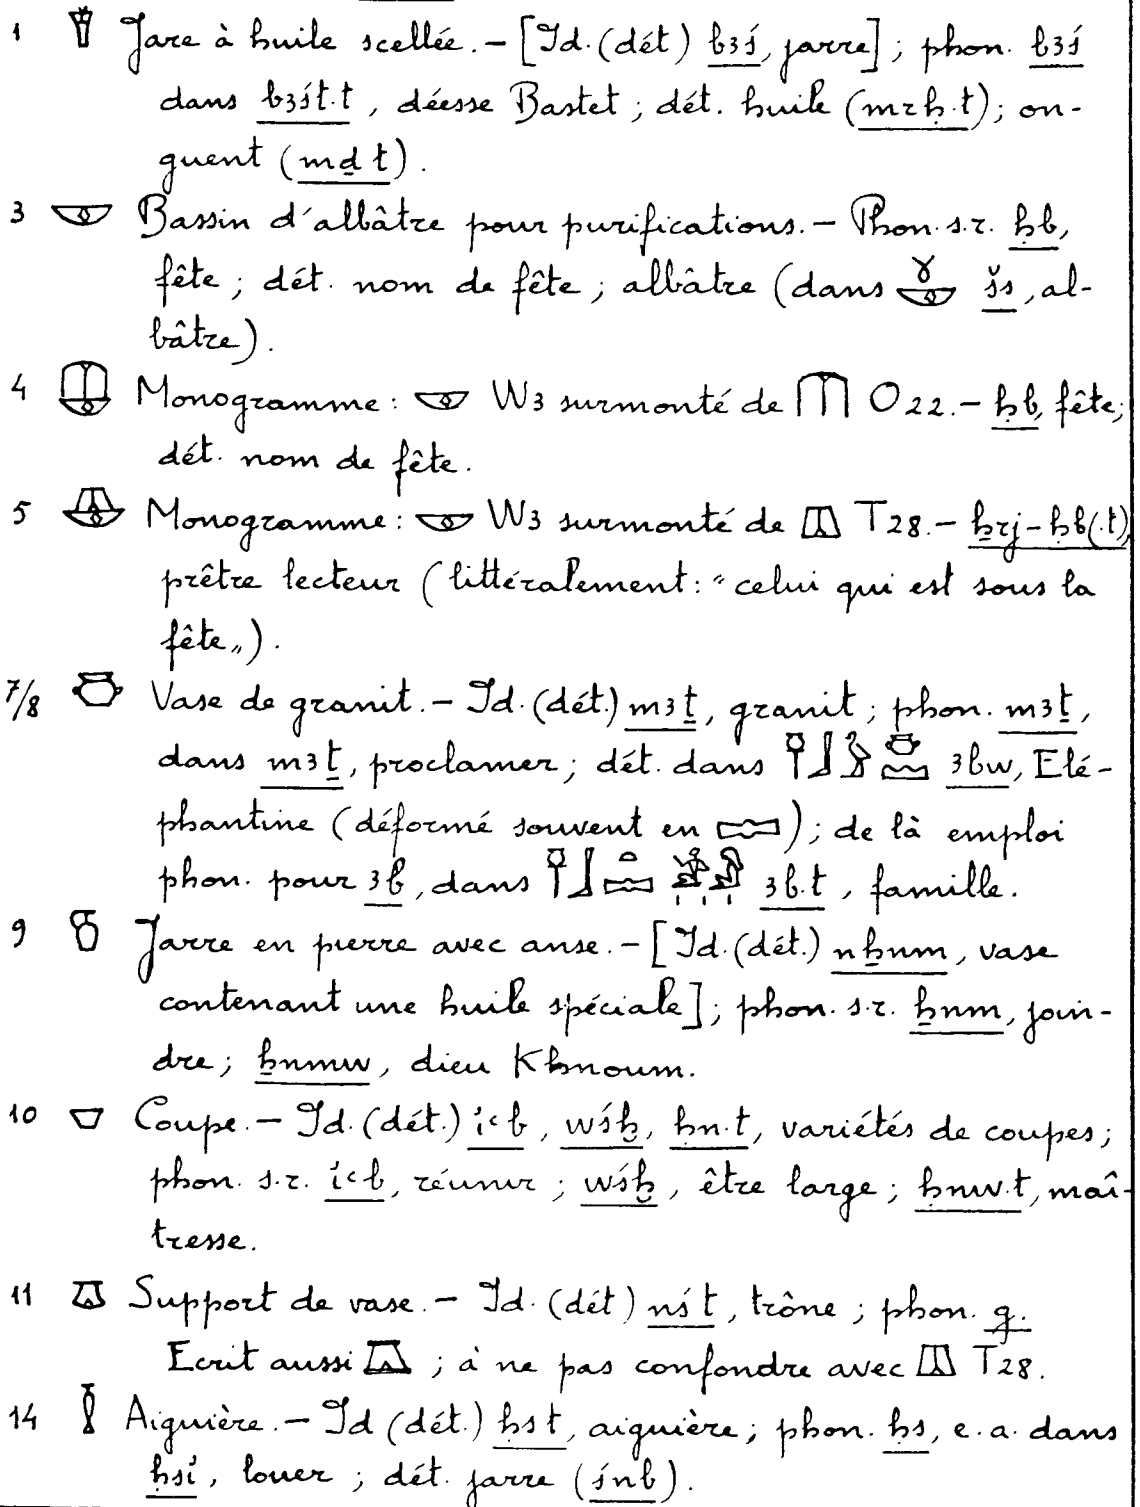 1 𓎯 Jare à huile scellée. – [Id. (dét) b3ś, jarre] ; phon. b3ś
dans b3śt.t, déesse Bastet ; dét. huile (mrḥ.t) ; on-
guent (mḏ t).
3 𓎱 Bassin d'albâtre pour purifications. – Phon. s.r. ḥb,
fête ; dét. nom de fête ; albâtre (dans 𓍱𓎱 šs, al-
bâtre).
4 𓎳 Monogramme : 𓎱 W3 surmonté de 𓉲 O22. – ḥb, fête;
dét. nom de fête.
5 𓎴 Monogramme : 𓎱 W3 surmonté de 𓌨 T28. – ẖrj-ḥb(.t)
prêtre lecteur (littéralement : "celui qui est sous la
fête„).
7/8 𓎶 Vase de granit. – Id. (dét.) m3ṯ, granit ; phon. m3ṯ,
dans m3ṯ, proclamer ; dét. dans 𓍋𓃀𓅱𓎶𓈉 3bw, Elé-
phantine (déformé souvent en 𓈉) ; de là emploi
phon. pour 3b, dans 𓍋𓃀𓏏𓈉𓀀𓁐𓏥 3b.t, famille.
9 𓎸 Jarre en pierre avec anse. – [Id. (dét.) nẖnm, vase
contenant une huile spéciale] ; phon. s.r. ẖnm, join-
dre ; ẖnmw, dieu Khnoum.
10 𓎺 Coupe. – Id. (dét.) iꜥb, wśḫ, ḥn.t, variétés de coupes ;
phon. s.r. iꜥb, réunir ; wśḫ, être large ; ḥnw.t, maî-
tresse.
11 𓎼 Support de vase. – Id. (dét) nś t, trône ; phon. g.
Ecrit aussi 𓎽 ; à ne pas confondre avec 𓌨 T28.
14 𓎿 Aiguière. – Id (dét.) ḥs t, aiguière ; phon. ḥs, e.a. dans
ḥsi, louer ; dét. jarre (śnb).